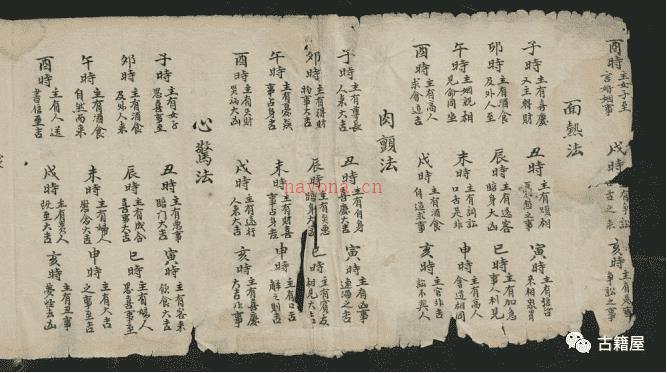 酉時 主女子至 言婚姻事 戌時 主有爭訟 口舌之來 亥時 主有惡事 爭訟之事
面熱法
子時 主有喜慶 又主得財 丑時 主有煩 之事 寅時 主有 來相
卯時 主有酒食 及外人至 辰時 主有遠客 暗身大凶 巳時 主有加急 事人利見
午時 主姻親相 見會同坐 未時 主有詞訟 口舌是非 申時 主有高人 會遇相同
酉時 主有高人 求會 吉 戌時 主有高人 自遠求事 亥時 主官非吉 訟不與人
肉顫法
子時 主有尊長 人來大吉 丑時 主有自身 喜慶大吉 寅時 主有凶事 之吉
卯時 主有得財 物事大吉 辰時 主有災惡 暗身大凶 巳時 主有賓友 相見大吉
午時 主有憂疑 事占身吉 未時 主有財喜 事占身吉 申時 主有口舌 解之則吉
酉時 主有失財 災病大凶 戌時 主有遠行 人來大吉 亥時 主有喜慶 大吉非事
心驚法
子時 主有女子 恩喜事至 丑時 主有惡事 暗門大吉 寅時 主有客來 飲食大吉
卯時 主有酒食 及外人來 辰時 主有成合 喜事大吉 巳時 主有婦人 思喜事至
午時 主有酒食 自然而來 未時 主有婦人 思念大吉 申時 主有大吉 之事至吉
酉時 主有人送 書信至吉 戌時 主有貴人 既至大吉 亥時 主有丑事 夢怪吉凶
hayona.cn
古籍屋